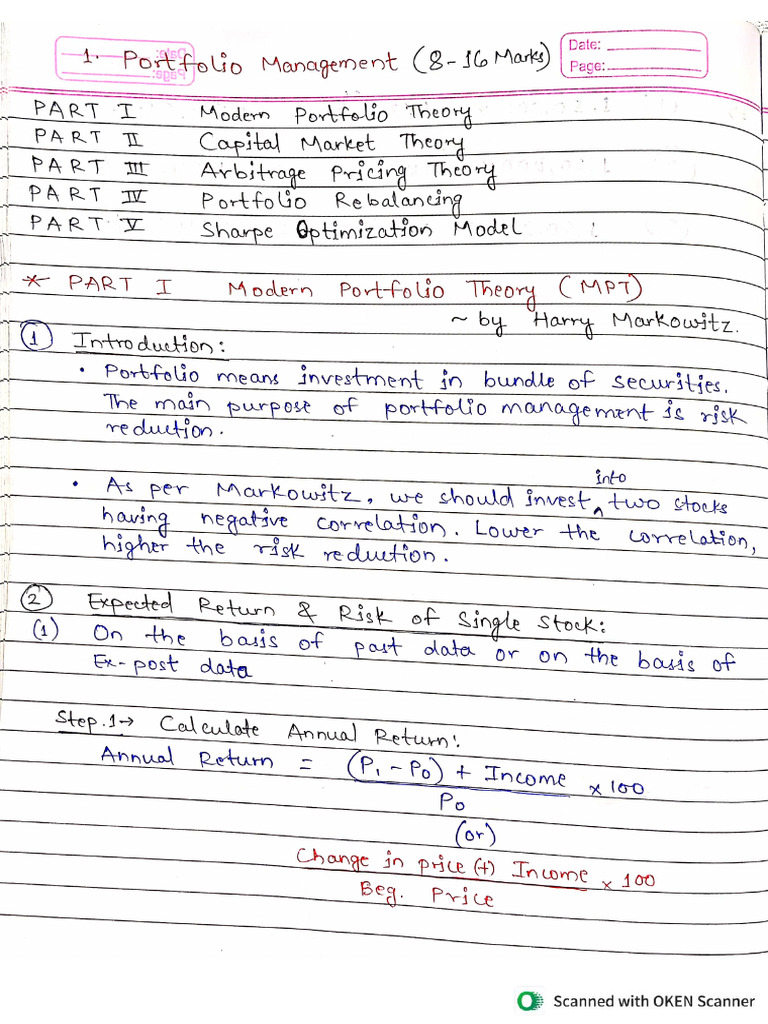 1. Portfolio Management (8-16 Marks)
Date:
Page:
PART I Modern Portfolio Theory
PART II Capital Market Theory
PART III Arbitrage Pricing Theory
PART IV Portfolio Rebalancing
PART V Sharpe Optimization Model
* PART I Modern Portfolio Theory (MPT)
~ by Harry Markowitz.
① Introduction:
• Portfolio means investment in bundle of securities.
The main purpose of portfolio management is risk
reduction.
into
• As per Markowitz, we should invest ^ two stocks
having negative correlation. Lower the correlation,
higher the risk reduction.
② Expected Return & Risk of Single Stock:
(1) On the basis of past data or on the basis of
Ex-post data
Step.1→ Calculate Annual Return:
Annual Return = (P₁ - P₀) + Income × 100
P₀
(or)
Change in price (+) Income × 100
Beg. Price
Scanned with OKEN Scanner